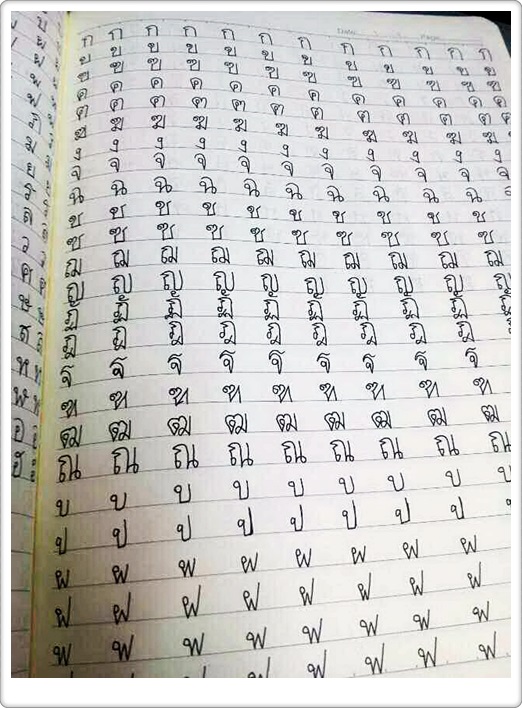 DATE PAGE
ก ก ก ก ก ก ก ก ก ก ก
ข ข ข ข ข ข ข ข ข ข ข
ฃ ฃ ฃ ฃ ฃ ฃ ฃ ฃ ฃ ฃ ฃ
ค ค ค ค ค ค ค ค ค ค ค
ฅ ฅ ฅ ฅ ฅ ฅ ฅ ฅ ฅ ฅ ฅ
ฆ ฆ ฆ ฆ ฆ ฆ ฆ ฆ ฆ ฆ ฆ
ง ง ง ง ง ง ง ง ง ง ง
จ จ จ จ จ จ จ จ จ จ จ
ฉ ฉ ฉ ฉ ฉ ฉ ฉ ฉ ฉ ฉ ฉ
ช ช ช ช ช ช ช ช ช ช
ซ ซ ซ ซ ซ ซ ซ ซ ซ ซ
ฌ ฌ ฌ ฌ ฌ ฌ ฌ ฌ ฌ ฌ
ญ ญ ญ ญ ญ ญ ญ ญ ญ ญ
ฎ ฎ ฎ ฎ ฎ ฎ ฎ ฎ ฎ ฎ
ฏ ฏ ฏ ฏ ฏ ฏ ฏ ฏ ฏ ฏ
ฐ ฐ ฐ ฐ ฐ ฐ ฐ ฐ ฐ
ฑ ฑ ฑ ฑ ฑ ฑ ฑ ฑ ฑ
ฒ ฒ ฒ ฒ ฒ ฒ ฒ ฒ ฒ
ณ ณ ณ ณ ณ ณ ณ ณ ณ
บ บ บ บ บ บ บ บ บ
ป ป ป ป ป ป ป ป ป
ผ ผ ผ ผ ผ ผ ผ ผ
ฝ ฝ ฝ ฝ ฝ ฝ ฝ ฝ
พ พ พ พ พ พ พ พ